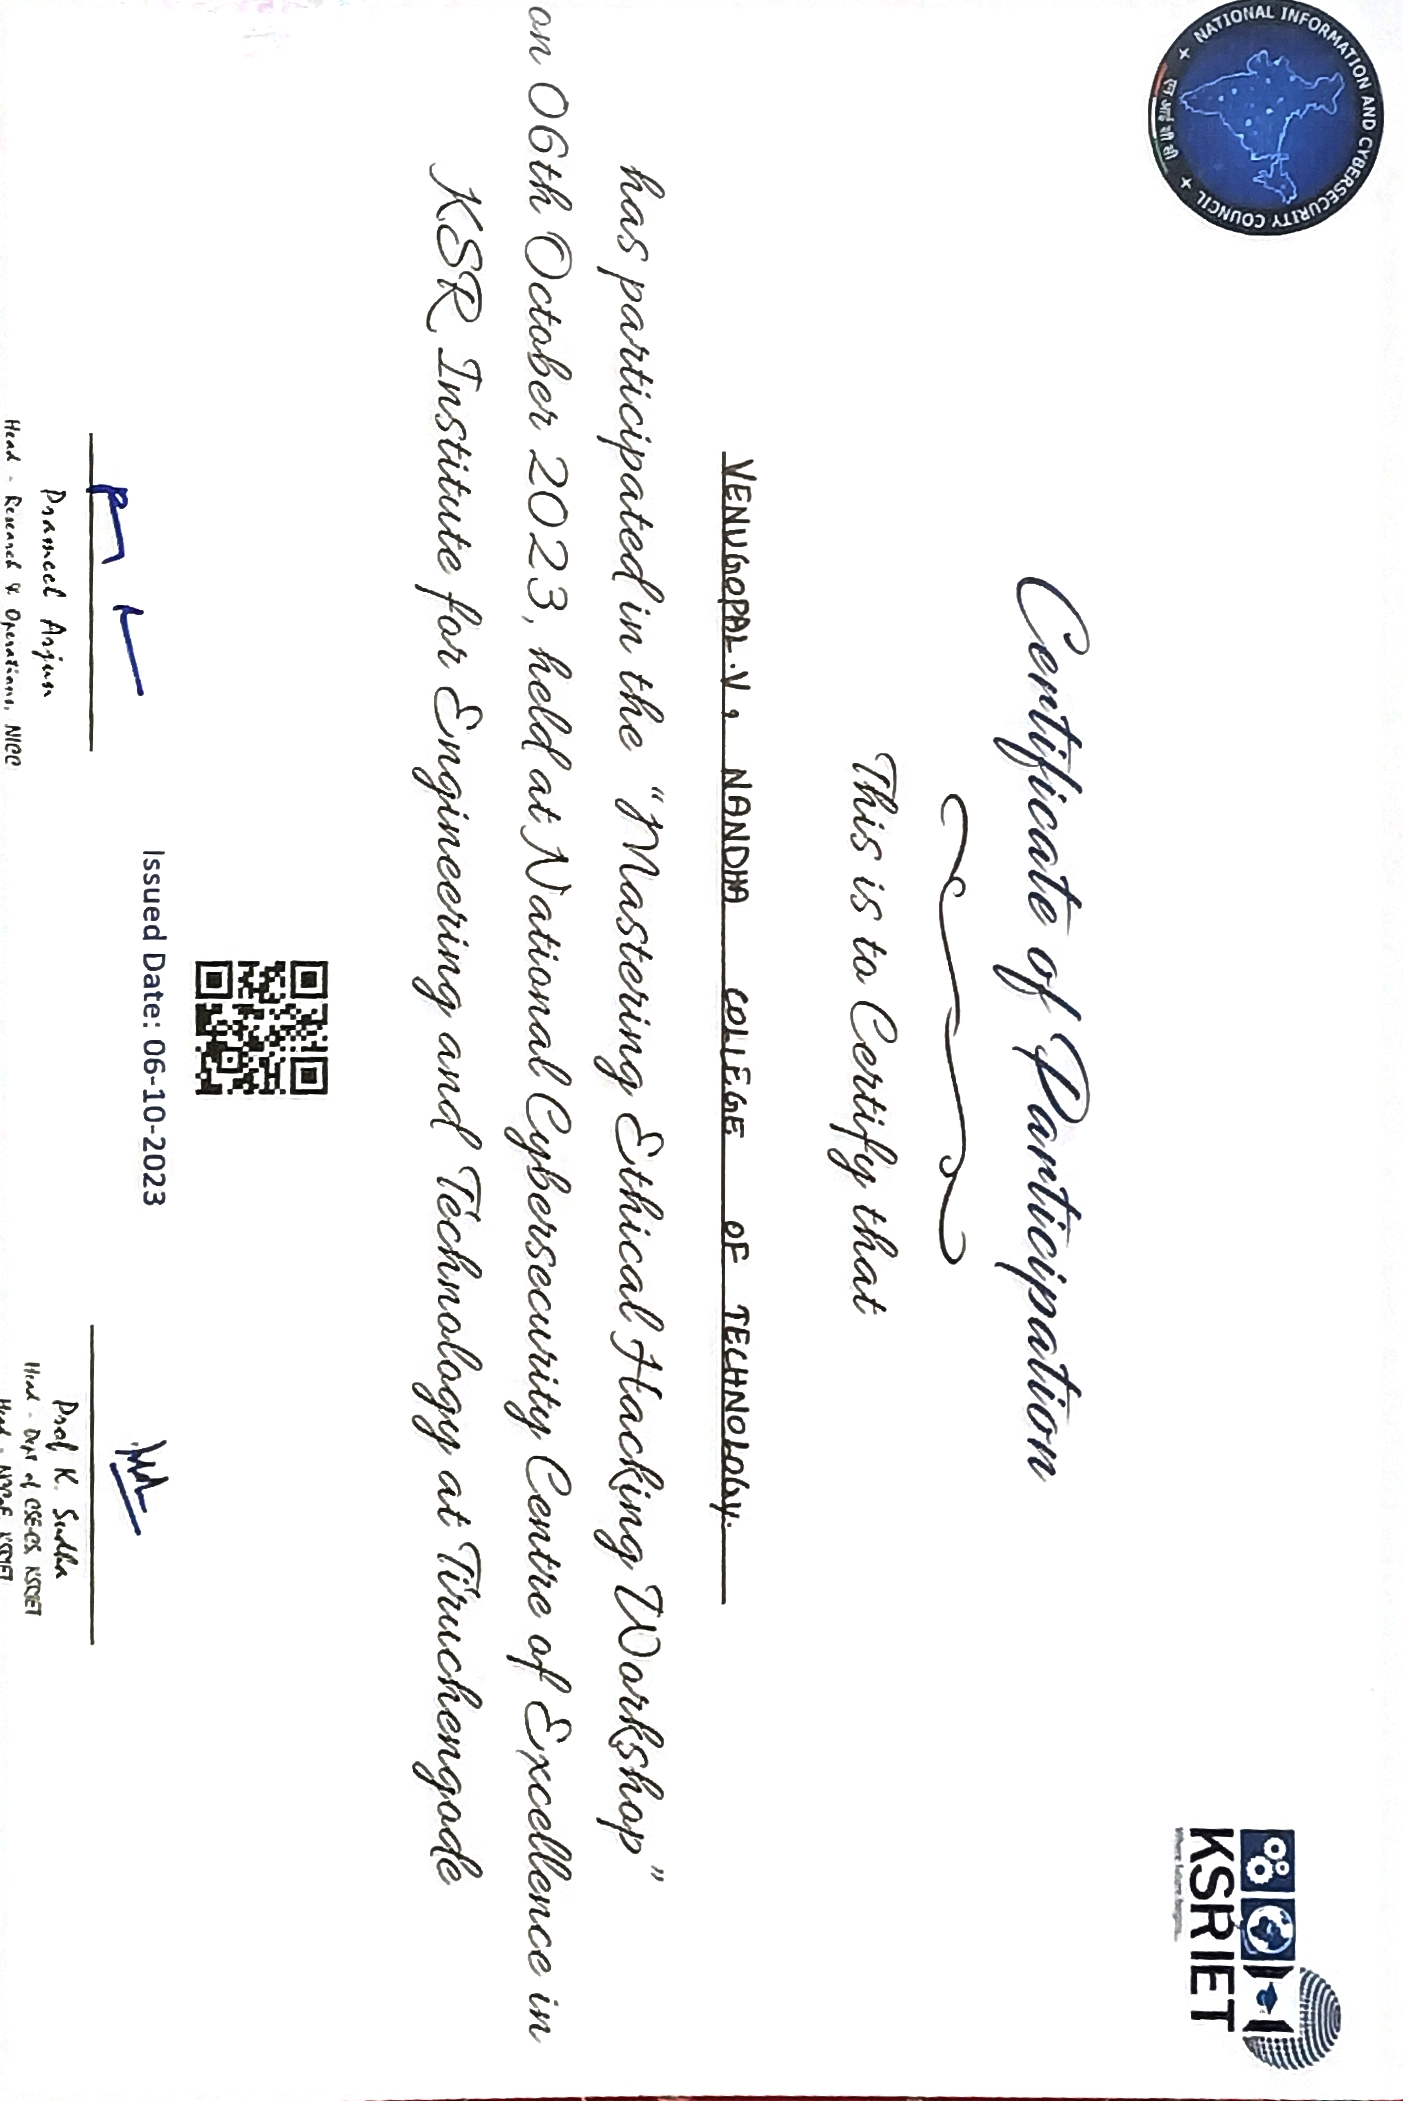 NATIONAL INFORMATION AND CYBERSECURITY COUNCIL
एन आई सी सी
KSRIET
Where future begins...
Certificate of Participation
This is to Certify that
VENUGOPAL.V, NANDHA COLLEGE OF TECHNOLOGY.
has participated in the “Mastering Ethical Hacking Workshop”
on 06th October 2023, held at National Cybersecurity Centre of Excellence in
KSR Institute for Engineering and Technology at Tiruchengode
Issued Date: 06-10-2023
Prameel Arjun
Head - Research & Operations, NICC
Prof K. Sudha
Head - Dept of CSE-CS, KSRIET
Head - NCCoE, KSRIET